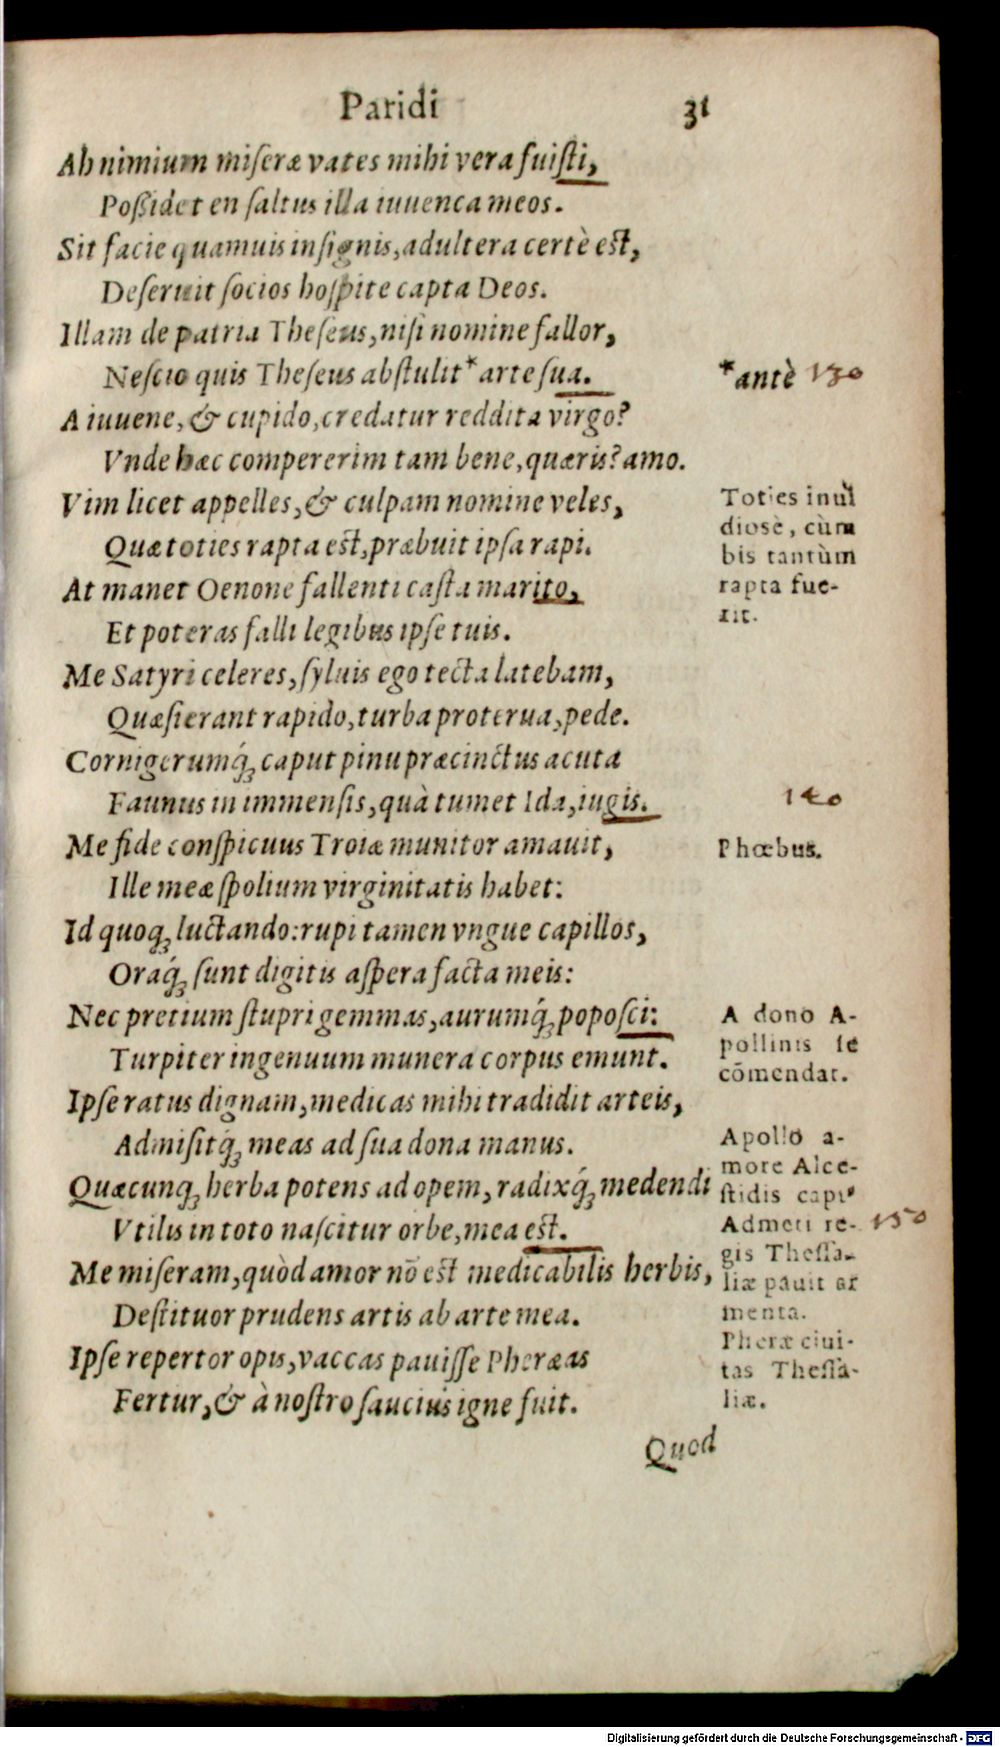 Paridi 31
Ah nimium miseræ vates mihi vera fuisti,
Poßidet en saltus illa iuuenca meos.
Sit facie quamuis insignis, adultera certè est,
Deseruit socios hospite capta Deos.
Illam de patria Theseus, nisi nomine fallor,
Nescio quis Theseus abstulit* arte sua.
*antè 130
A iuuene, & cupido, credatur reddita virgo?
Vnde hæc compererim tam bene, quæris? amo.
Vim licet appelles, & culpam nomine veles,
Quæ toties rapta est, præbuit ipsa rapi.
Toties inui
diosè, cùm
bis tantùm
rapta fue-
rit.
At manet Oenone fallenti casta marito,
Et poteras falli legibus ipse tuis.
Me Satyri celeres, syluis ego tecta latebam,
Quæsierant rapido, turba proterua, pede.
Cornigerumq́ꝫ caput pinu præcinctus acuta
Faunus in immensis, quà tumet Ida, iugis.
140
Me fide conspicuus Troiæ munitor amauit,
Phœbus.
Ille meæ spolium virginitatis habet:
Id quoqꝫ luctando: rupi tamen vngue capillos,
Oraq́ꝫ sunt digitis aspera facta meis:
Nec pretium stupri gemmas, aurumq́ꝫ poposci:
Turpiter ingenuum munera corpus emunt.
A dono A-
pollinis se
cōmendat.
Ipse ratus dignam, medicas mihi tradidit arteis,
Admisitq́ꝫ meas ad sua dona manus.
Quæcunqꝫ herba potens ad opem, radixq́ꝫ medendi
Vtilis in toto nascitur orbe, mea est.
Me miseram, quòd amor nō est medicabilis herbis,
Destituor prudens artis ab arte mea.
Ipse repertor opis, vaccas pauisse Pheræas
Fertur, & à nostro saucius igne fuit.
Apollo a-
more Alce-
stidis capt⁹
Admeti re-
150
gis Thessa-
liæ pauit ar
menta.
Pheræ ciui-
tas Thessa-
liæ.
Quod
Digitalisierung gefördert durch die Deutsche Forschungsgemeinschaft - DFG